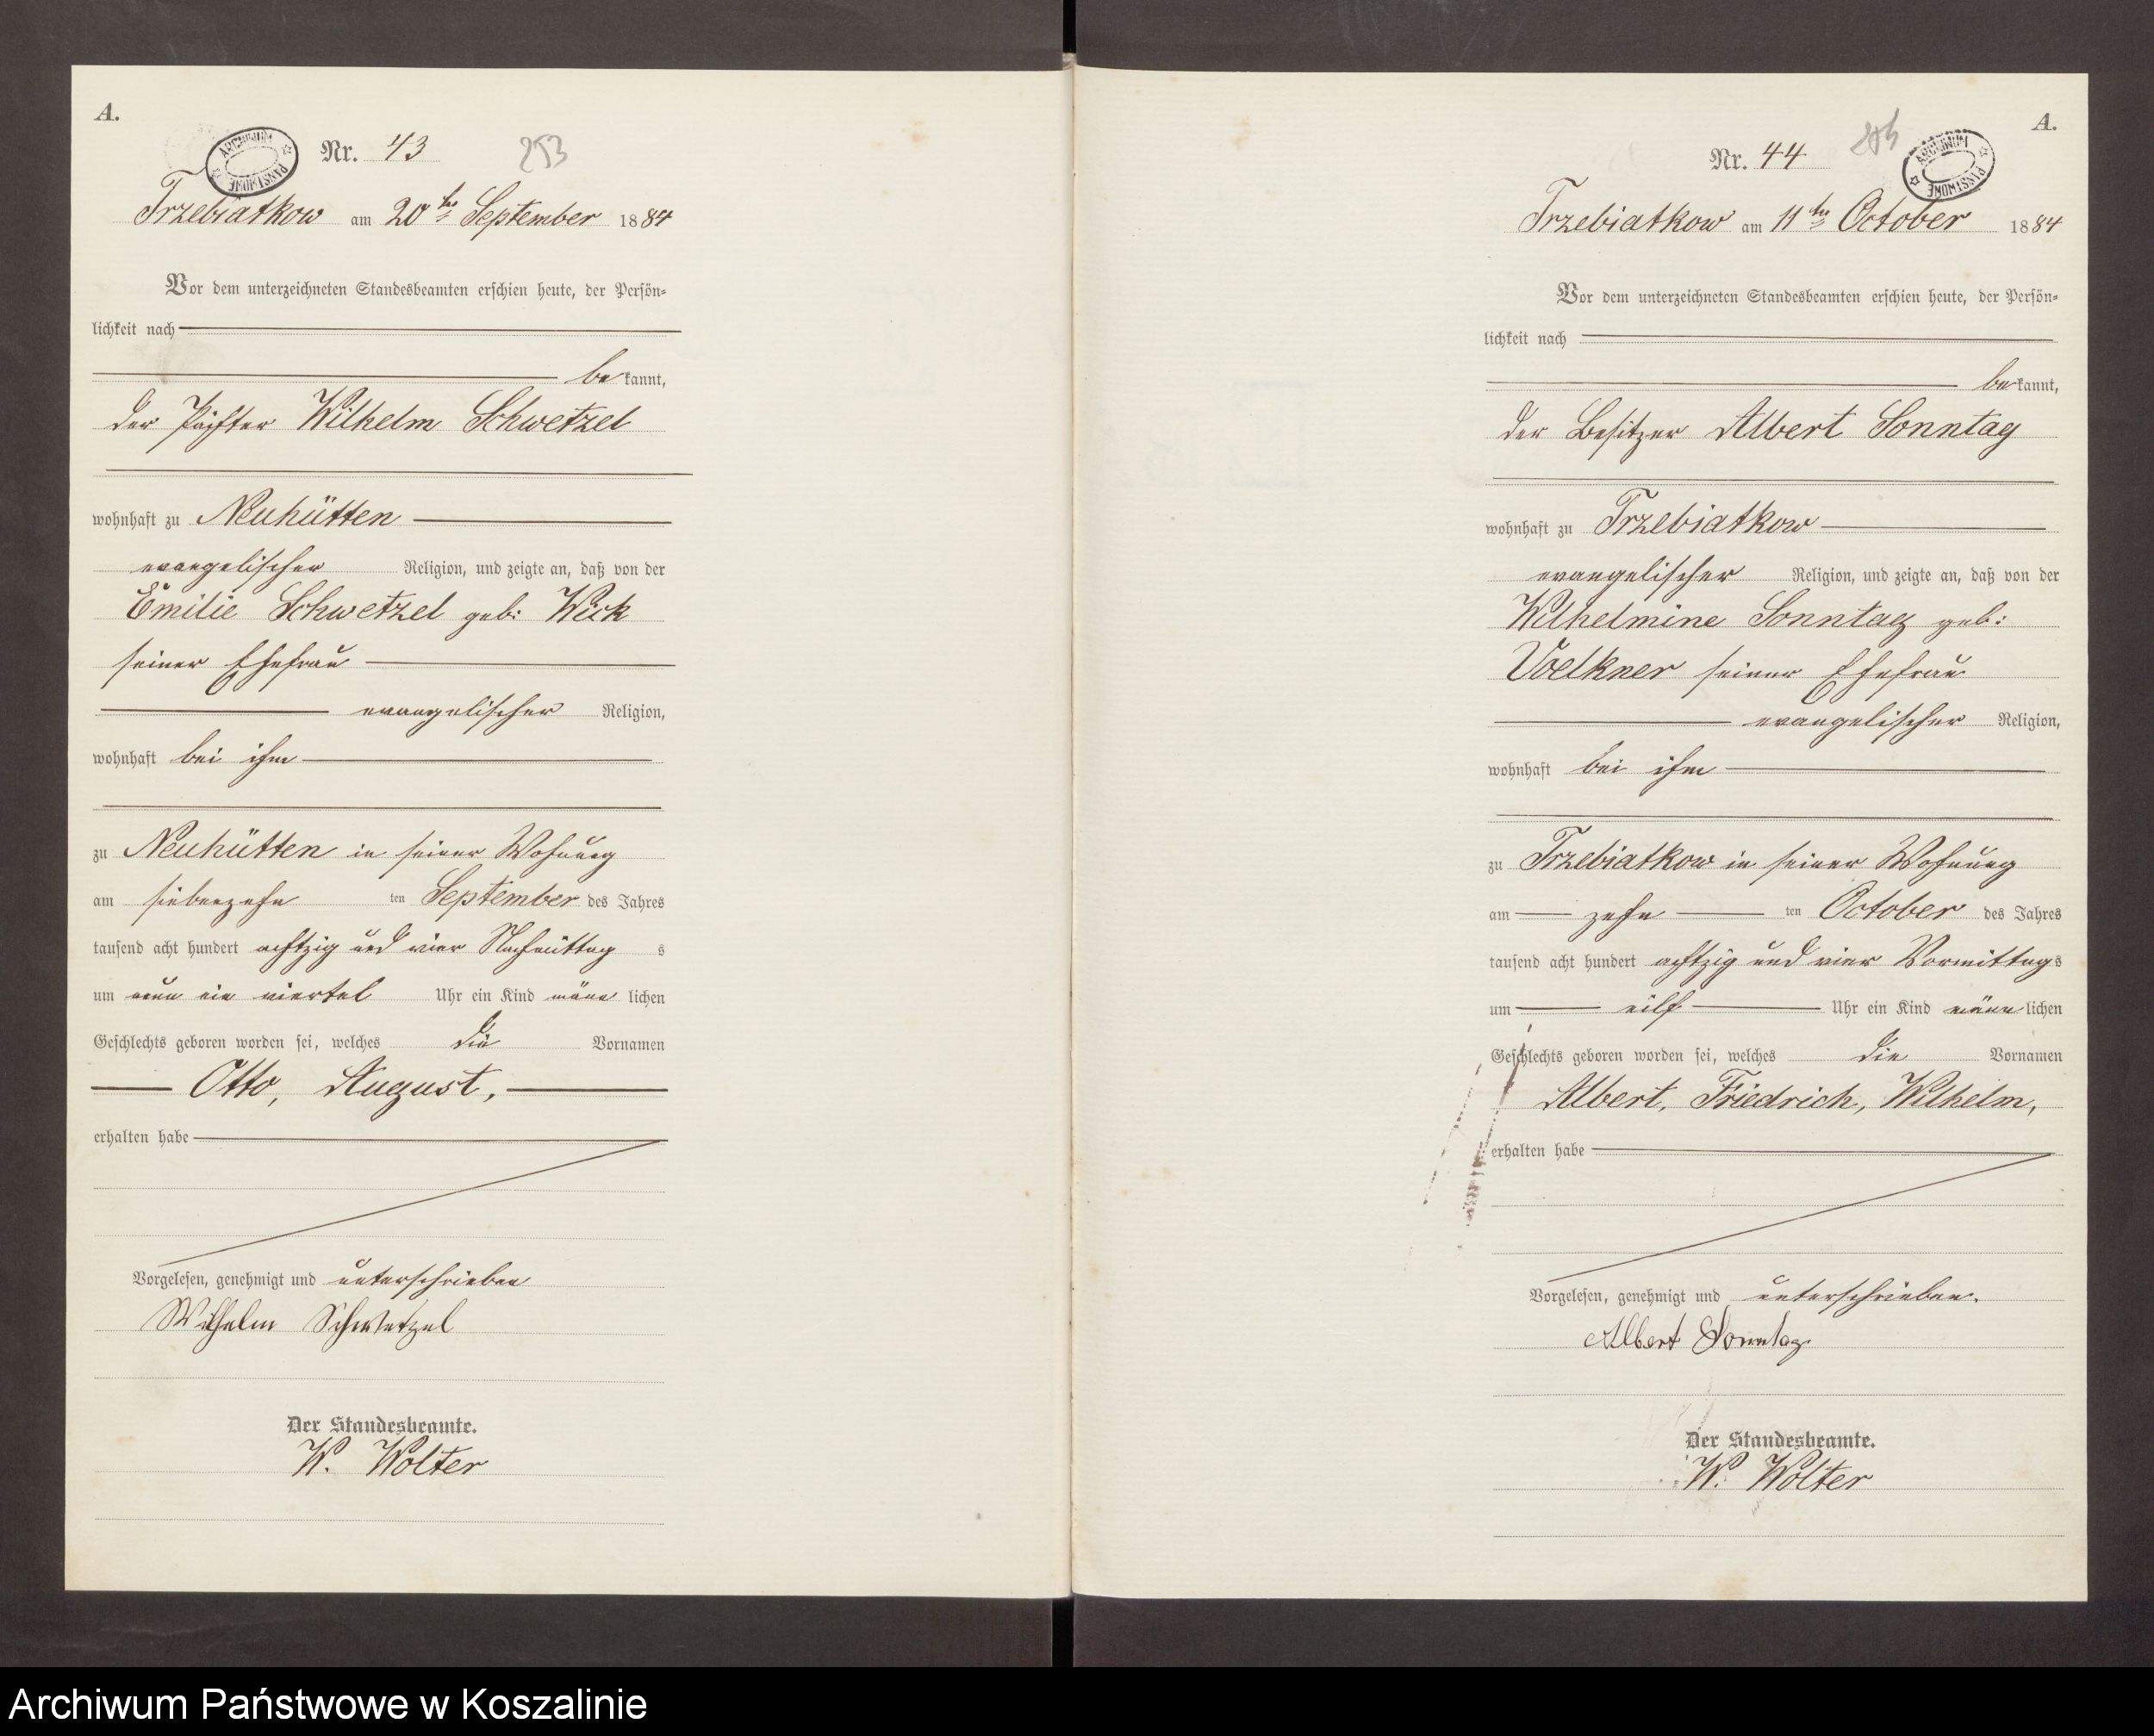 A.
ARCHIWUM PAŃSTWOWE
Nr. 43
253
Trzebiatkow am 20ten September 1884
Vor dem unterzeichneten Standesbeamten erschien heute, der Persön-
lichkeit nach
be kannt,
der Pächter Wilhelm Schwetzel
wohnhaft zu Neuhütten
evangelischer Religion, und zeigte an, daß von der
Emilie Schwetzel geb: Wick
seiner Ehefrau
evangelischer Religion,
wohnhaft bei ihm
zu Neuhütten in seiner Wohnung
am siebenzehn ten September des Jahres
tausend acht hundert achtzig und vier Nachmittag s
um neun ein viertel Uhr ein Kind männ lichen
Geschlechts geboren worden sei, welches die Vornamen
Otto, August,
erhalten habe
Vorgelesen, genehmigt und unterschrieben
Wilhelm Schwetzel
Der Standesbeamte.
W. Wolter
A.
ARCHIWUM PAŃSTWOWE
Nr. 44
Trzebiatkow am 11ten October 1884
Vor dem unterzeichneten Standesbeamten erschien heute, der Persön-
lichkeit nach
be kannt,
der Besitzer Albert Sonntag
wohnhaft zu Trzebiatkow
evangelischer Religion, und zeigte an, daß von der
Wilhelmine Sonntag geb:
Voelkner seiner Ehefrau
evangelischer Religion,
wohnhaft bei ihm
zu Trzebiatkow in seiner Wohnung
am zehn ten October des Jahres
tausend acht hundert achtzig und vier Vormittags
um eilf Uhr ein Kind männ lichen
Geschlechts geboren worden sei, welches die Vornamen
Albert, Friedrich, Wilhelm,
erhalten habe
Vorgelesen, genehmigt und unterschrieben.
Albert Sonntag
Der Standesbeamte.
W. Wolter
Archiwum Państwowe w Koszalinie